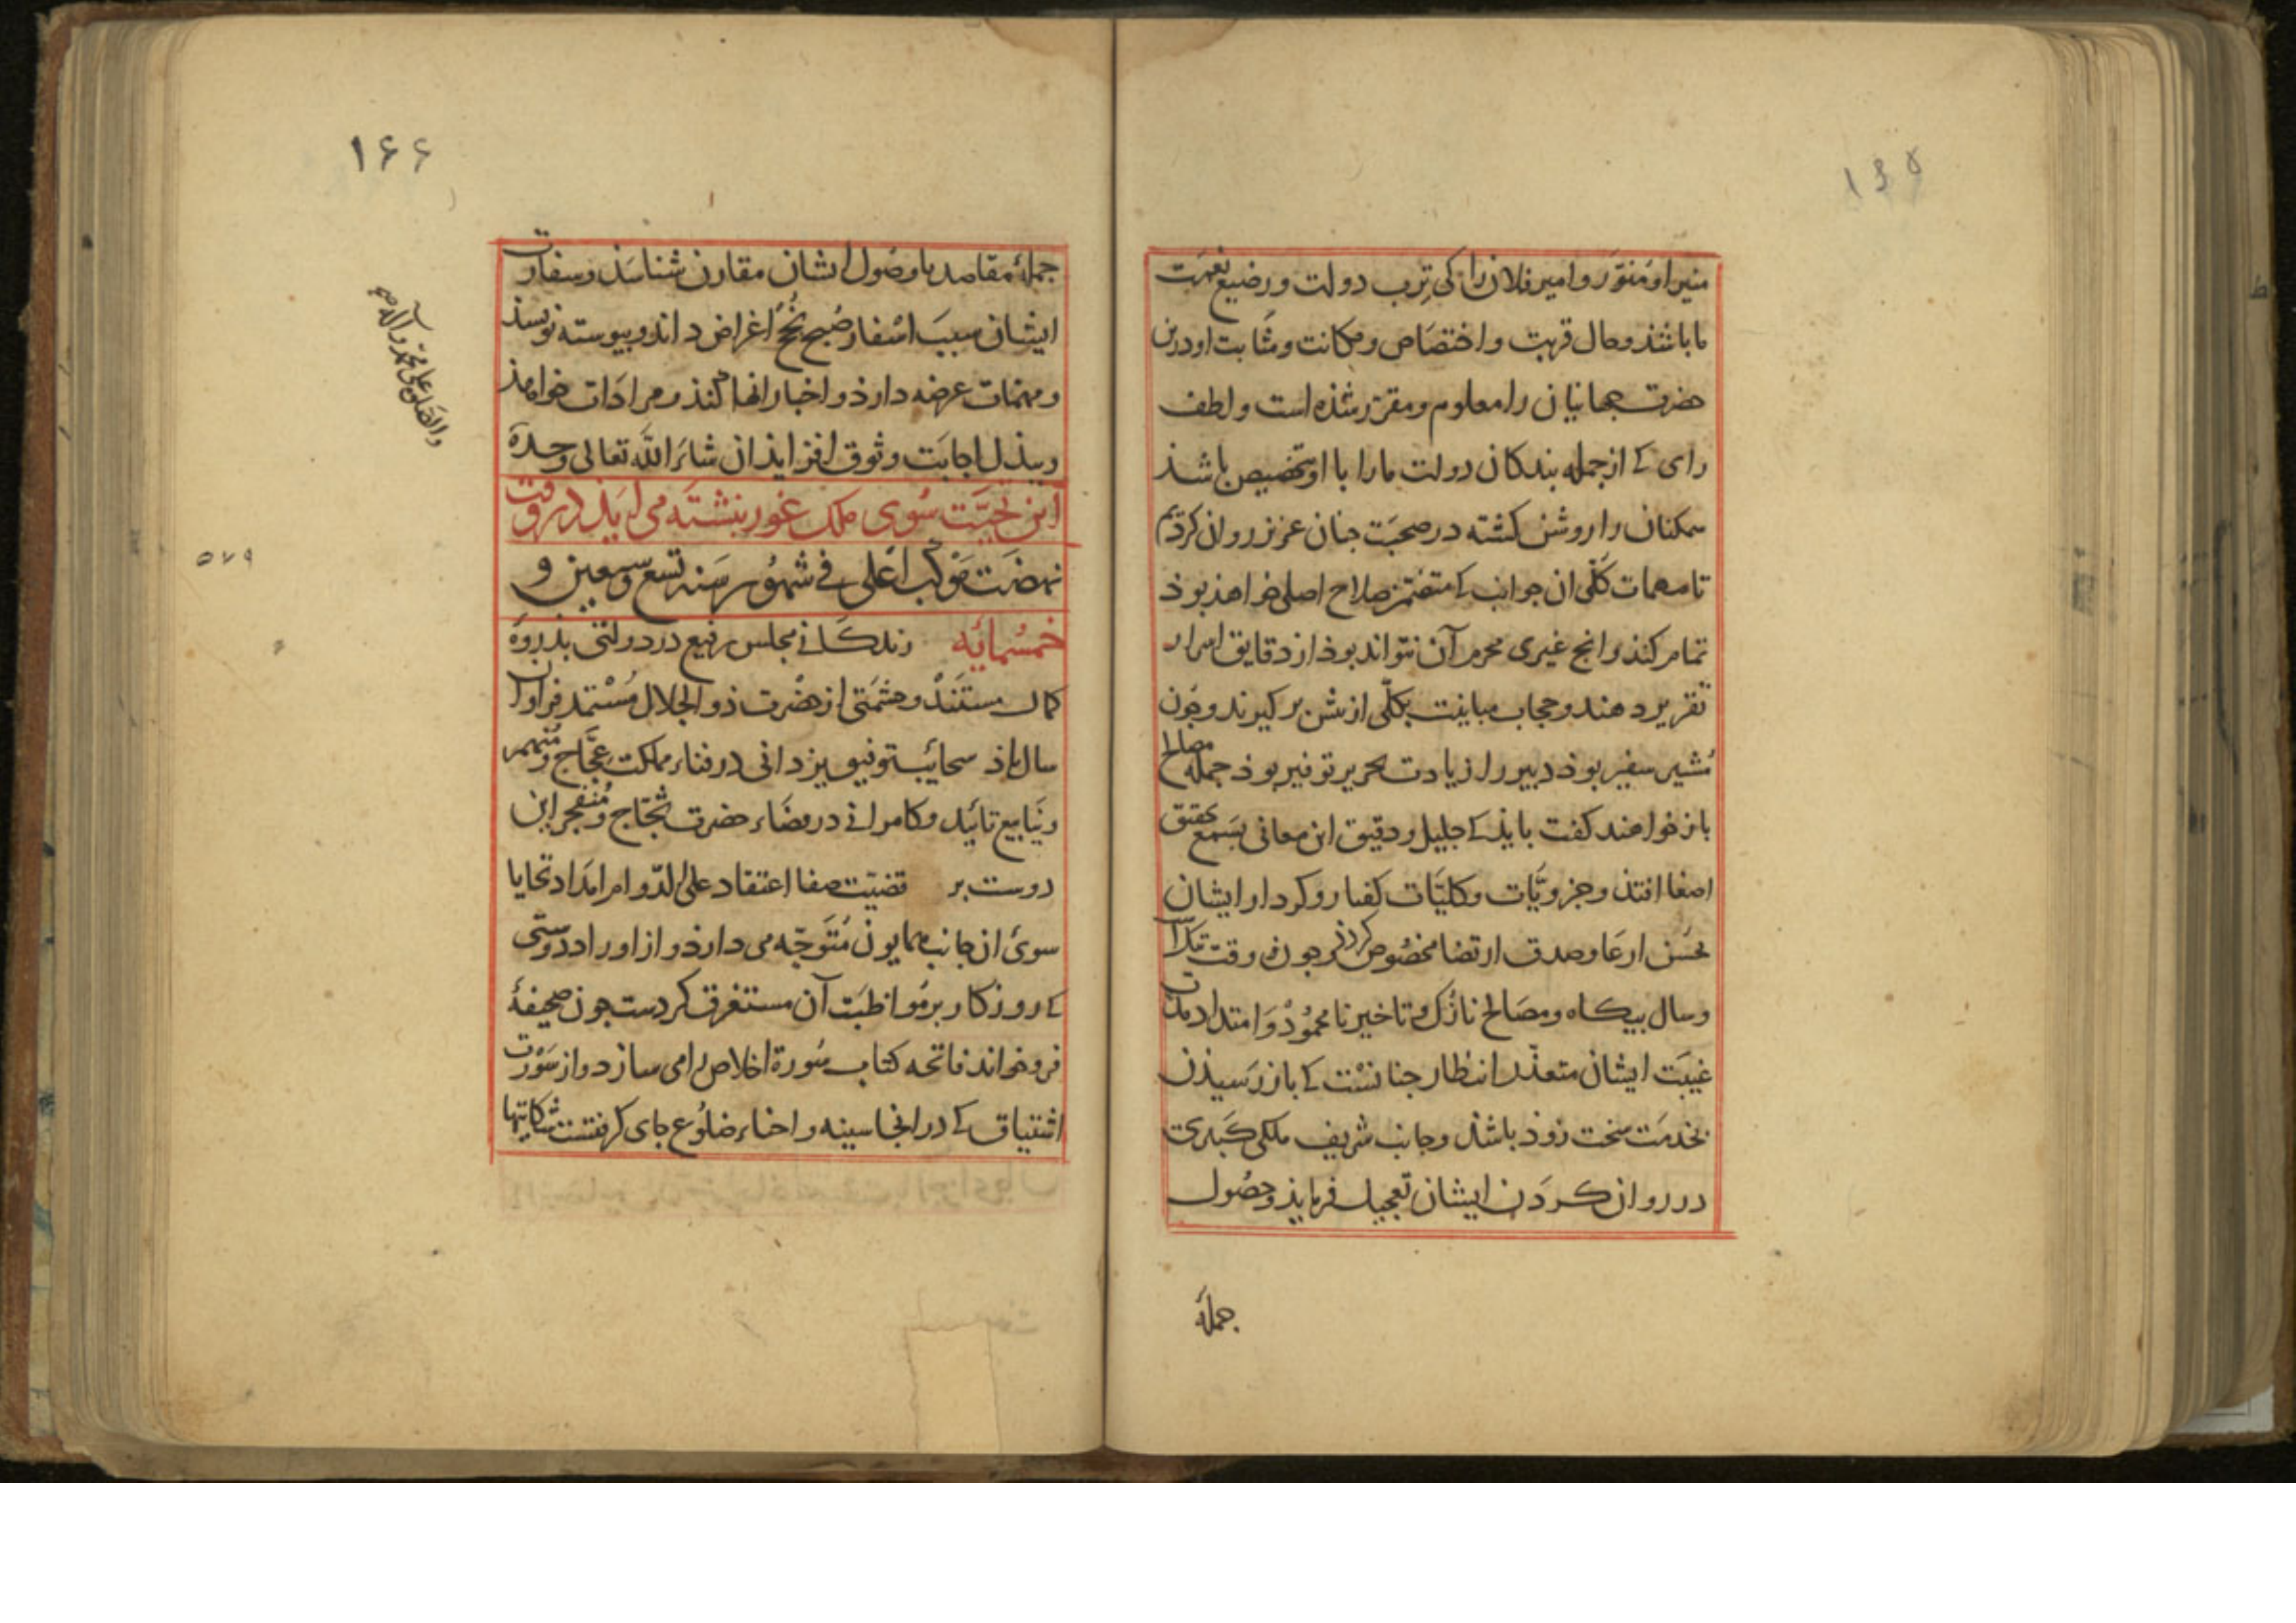 ۱۶۵
منیر او منوّر و امیر فلان را کی ترب دولت و رضیع نعمت
ما باشذ و حال قربت و اختصاص و مکانت و مثابت او درین
حضرت جهانیان را معلوم و مقرّر شذه است و لطف
رای کے از جمله بندکان دولت ما را با او تخصیص باشذ
همکنان را روشن کشته در صحبت جنان عزیز روان کردیم
تا مهمات کلّی ان جوانب کے متضمّن صلاح اصلی خواهذ بوذ
تمام کنذ و انج غیری محرم آن نتواند بوذ از دقایق اسرار
تقریر دهند و حجاب مباینت بکلّی از بیش بر کیرند و جون
مُشیر سفیر بوذ دبیر را زیادت تحریر توفیر بوذ جمله مصالح
باز خواهند کفت بایذ کے جلیل و دقیق این معانی بسمع تحقیق
اصغا افتذ و جزویّات و کلیّات کفتار و کردار ایشان
بحسن ارعا و صدق ارتضا مخصوص کردذ و جون وقت تنکست
وسال بیکاه و مصالح نازک و تاخیر نامحمُوذ وَ امتداد مدّت
غیبَت ایشان متعذّر انتظار جنانست کے باز رَسیذن
بخدمَت سخت زوذ باشذ و جانب شریف ملکی کبیری
در روان کردَن ایشان تعجیل فرمایذ و حصُول
جملهٔ
۱۶۶
جملهٔ مقاصد با وصُول ایشان مقارن شناسَذ و سفارت
ایشان سببَ اسْفار صُبح نُجْح اغراض داند و بیوسته نویسذ
و مهمّات عرضه دارذ و اخبار انها کنذ و مرادَات خواهذ
و ببذل اجابَت وثوق افزایذ ان شاءَ اللّٰه تعالی وحدَهٗ
این تحیّت سُوی ملک غور نبشته می ایَذ در وقت
نهضَت مَوْکب اعْلی فی شهُور سَنه تسع و سبعین و
خمسُمائِه زندکانی مجلس رفیع در دولتی بذروَهٔ
کمال مستَنَدْ و حشمَتی از حضْرت ذو الجلال مُسْتمد فراوان
سال باذ سحائب توفیق یزدانی در فناء مملکت عجّاج و منهمر
و ینَابیع تائید و کامرانی در فضَاء حضرت ثجّاج و مُنفجر این
دوست بر قضیّت صفاء اعتقاد علی الدّوام امدَاد تحایا
سوئ ان جانب همایون مُتَوجّه می دارذ و از اوراد دوستی
کے روزکار بر مُواظبَت آن مستغرق کردست جون صحیفهٔ
فرو خواند فاتحه کتاب سُورة اخلاص را می سازد و از سَوْرت
اشتیاق کے در انحا سینه و احناء ضلُوع جای کرفتست شکایتها
والصّلوة علی محمّد و آله
۵۷۹